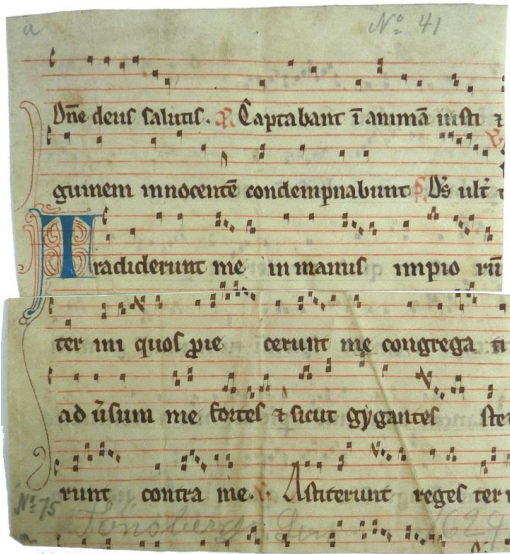 a Nº 41
Dñe deus salutis. Captabant ī animā iusti ⁊
guinem innocentē condempnabunt Ds ult
Tradiderunt me in manus impio rū
ter in i quos proie cerunt me congrega ti
ad ūsum me fortes ⁊ sicut gygantes ste
runt contra me. Astiterunt reges ter r
Nº 75 1629